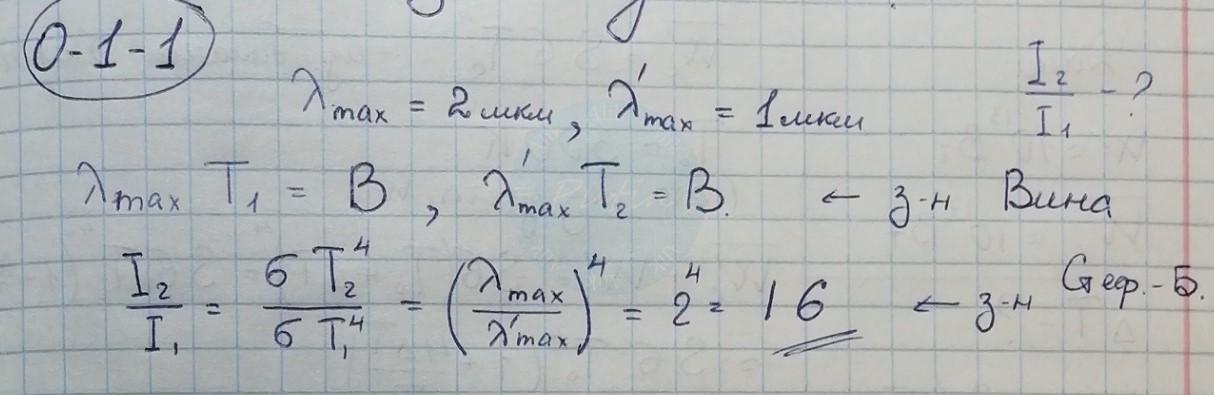 0-1-1
λmax = 2 мкм, λ'max = 1 мкм   I₂/I₁ - ?
λmax T₁ = B, λ'max T₂ = B. ← з-н Вина
I₂/I₁ = σT₂⁴/σT₁⁴ = (λmax/λ'max)⁴ = 2⁴ = 16 ← з-н Стеф.-Б.